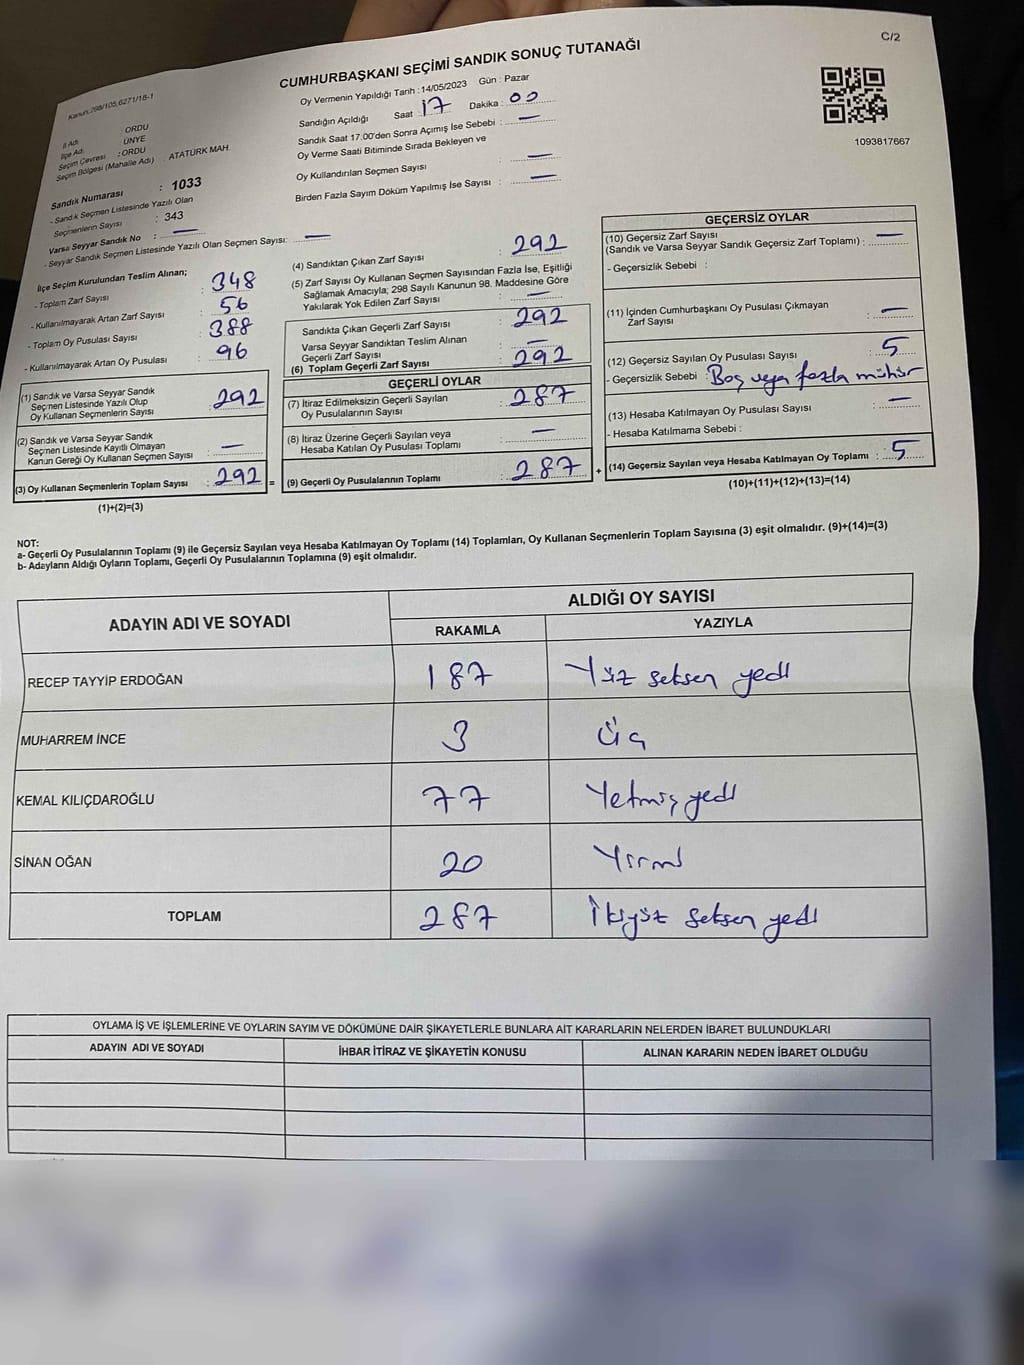 C/2
Kanun:298/105,6271/18-1
CUMHURBAŞKANI SEÇİMİ SANDIK SONUÇ TUTANAĞI
Oy Vermenin Yapıldığı Tarih : 14/05/2023 Gün : Pazar
Sandığın Açıldığı Saat : 17 Dakika : 00
Sandık Saat 17:00'den Sonra Açımış İse Sebebi : —
Oy Verme Saati Bitiminde Sırada Bekleyen ve
Oy Kullandırılan Seçmen Sayısı : —
Birden Fazla Sayım Döküm Yapılmış İse Sayısı : —
1093817667
İl Adı ORDU
İlçe Adı ÜNYE
Seçim Çevresi : ORDU
Seçim Bölgesi (Mahalle Adı) ATATÜRK MAH.
Sandık Numarası : 1033
- Sandık Seçmen Listesinde Yazılı Olan
Seçmenlerin Sayısı : 343
Varsa Seyyar Sandık No : —
- Seyyar Sandık Seçmen Listesinde Yazılı Olan Seçmen Sayısı: —
İlçe Seçim Kurulundan Teslim Alınan;
- Toplam Zarf Sayısı : 348
- Kullanılmayarak Artan Zarf Sayısı : 56
- Toplam Oy Pusulası Sayısı : 388
- Kullanılmayarak Artan Oy Pusulası : 96
(1) Sandık ve Varsa Seyyar Sandık
Seçmen Listesinde Yazılı Olup
Oy Kullanan Seçmenlerin Sayısı : 292
(2) Sandık ve Varsa Seyyar Sandık
Seçmen Listesinde Kayıtlı Olmayan
Kanun Gereği Oy Kullanan Seçmen Sayısı : —
(3) Oy Kullanan Seçmenlerin Toplam Sayısı : 292 =
(1)+(2)=(3)
(4) Sandıktan Çıkan Zarf Sayısı : 292
(5) Zarf Sayısı Oy Kullanan Seçmen Sayısından Fazla İse, Eşitliği
Sağlamak Amacıyla; 298 Sayılı Kanunun 98. Maddesine Göre
Yakılarak Yok Edilen Zarf Sayısı : —
Sandıkta Çıkan Geçerli Zarf Sayısı : 292
Varsa Seyyar Sandıktan Teslim Alınan
Geçerli Zarf Sayısı : —
(6) Toplam Geçerli Zarf Sayısı : 292
GEÇERLİ OYLAR
(7) İtiraz Edilmeksizin Geçerli Sayılan
Oy Pusulalarının Sayısı : 287
(8) İtiraz Üzerine Geçerli Sayılan veya
Hesaba Katılan Oy Pusulası Toplamı : —
(9) Geçerli Oy Pusulalarının Toplamı : 287 +
GEÇERSİZ OYLAR
(10) Geçersiz Zarf Sayısı
(Sandık ve Varsa Seyyar Sandık Geçersiz Zarf Toplamı) : —
- Geçersizlik Sebebi :
(11) İçinden Cumhurbaşkanı Oy Pusulası Çıkmayan
Zarf Sayısı : —
(12) Geçersiz Sayılan Oy Pusulası Sayısı : 5
- Geçersizlik Sebebi : Boş veya fazla mühür
(13) Hesaba Katılmayan Oy Pusulası Sayısı : —
- Hesaba Katılmama Sebebi :
(14) Geçersiz Sayılan veya Hesaba Katılmayan Oy Toplamı : 5
(10)+(11)+(12)+(13)=(14)
NOT:
a- Geçerli Oy Pusulalarının Toplamı (9) ile Geçersiz Sayılan veya Hesaba Katılmayan Oy Toplamı (14) Toplamları, Oy Kullanan Seçmenlerin Toplam Sayısına (3) eşit olmalıdır. (9)+(14)=(3)
b- Adayların Aldığı Oyların Toplamı, Geçerli Oy Pusulalarının Toplamına (9) eşit olmalıdır.
ADAYIN ADI VE SOYADI ALDIĞI OY SAYISI
RAKAMLA YAZIYLA
RECEP TAYYİP ERDOĞAN 187 Yüz seksen yedi
MUHARREM İNCE 3 Üç
KEMAL KILIÇDAROĞLU 77 Yetmiş yedi
SİNAN OĞAN 20 Yirmi
TOPLAM 287 İkiyüz seksen yedi
OYLAMA İŞ VE İŞLEMLERİNE VE OYLARIN SAYIM VE DÖKÜMÜNE DAİR ŞİKAYETLERLE BUNLARA AİT KARARLARIN NELERDEN İBARET BULUNDUKLARI
ADAYIN ADI VE SOYADI İHBAR İTİRAZ VE ŞİKAYETİN KONUSU ALINAN KARARIN NEDEN İBARET OLDUĞU